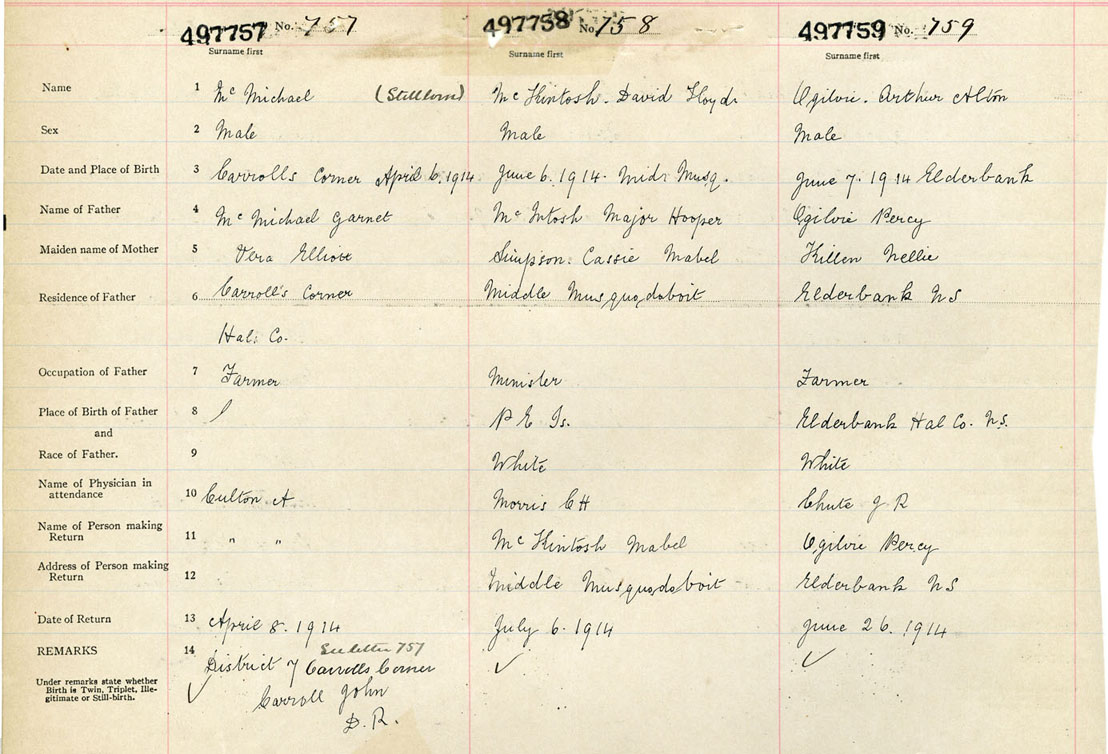 497757 No. 757 497758 No. 758 497759 No. 759
Surname first Surname first Surname first
Name 1 Mc Michael (Stillborn) Mc Kintosh. David Lloyd. Ogilvie. Arthur Alton
Sex 2 Male Male Male
Date and Place of Birth 3 Carrolls Corner April 6. 1914 June 6. 1914. Mid. Musq. June 7. 1914 Elderbank
Name of Father 4 Mc Michael Garnet Mc Intosh Major Hooper Ogilvie Percy
Maiden name of Mother 5 Vera Elliott Simpson. Cassie Mabel Killen Nellie
Residence of Father 6 Carroll's Corner Middle Musquodoboit Elderbank NS
Hal. Co.
Occupation of Father 7 Farmer Minister Farmer
Place of Birth of Father 8 P E Is. Elderbank Hal Co. N.S.
and
Race of Father. 9 White White
Name of Physician in
attendance 10 Culton A Morris C H Chute J R
Name of Person making
Return 11 " " Mc Kintosh Mabel Ogilvie Percy
Address of Person making
Return 12 Middle Musquodoboit Elderbank NS
Date of Return 13 April 8. 1914 July 6. 1914 June 26. 1914
REMARKS 14 See letter 757
District 7 Carrolls Corner ✓ ✓
Under remarks state whether
Birth is Twin, Triplet, Ille-
gitimate or Still-birth. ✓ Carroll John
D.R.